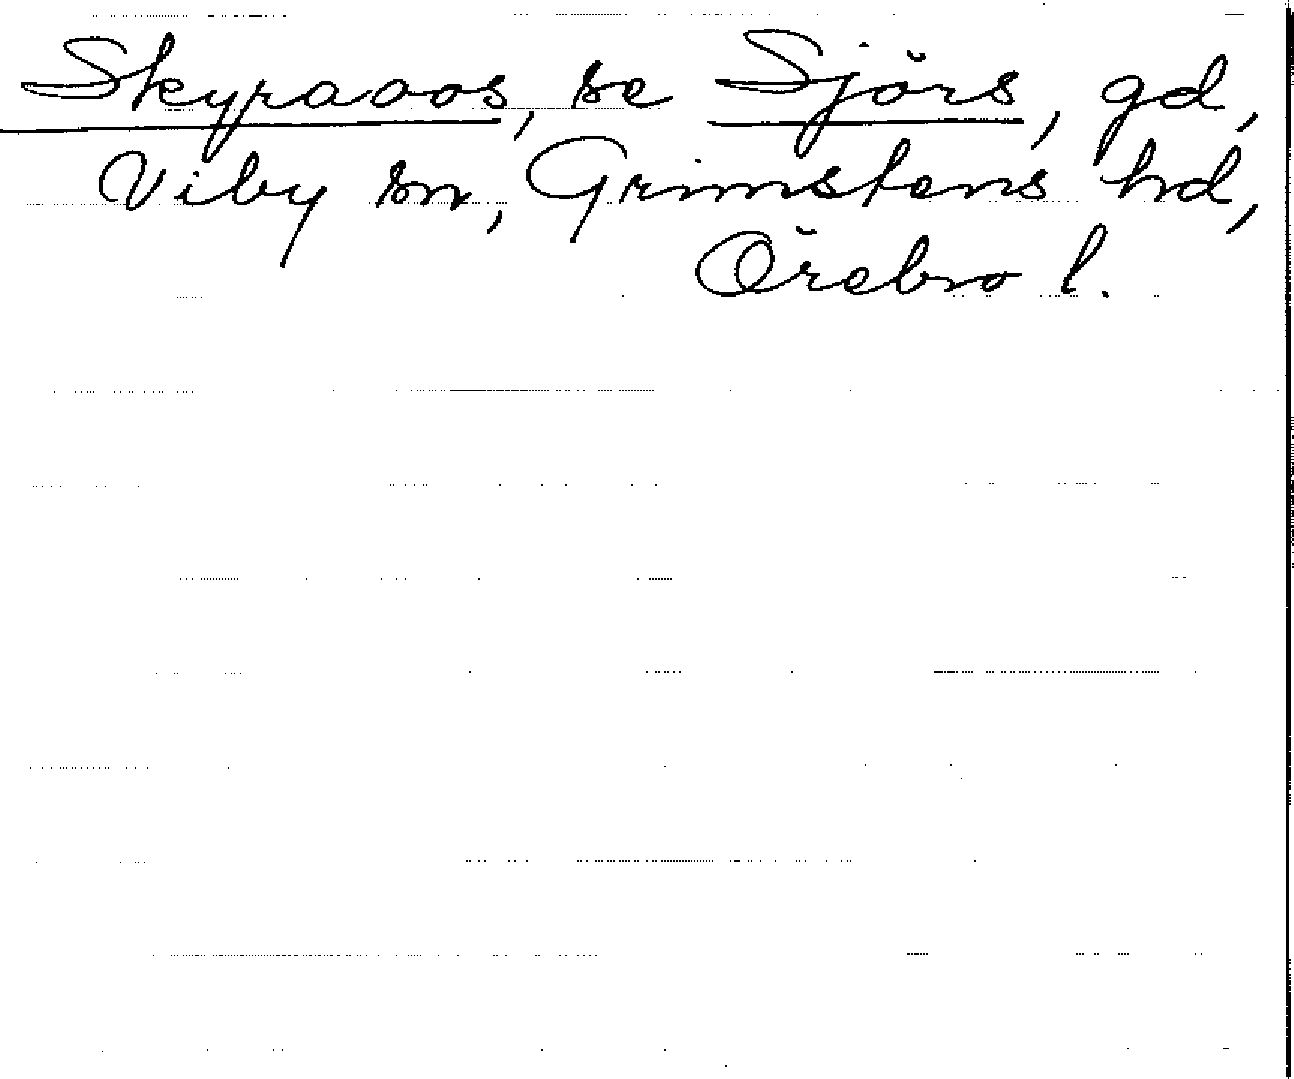 Skyraoos, se Sjörs, gd,
Viby sn, Grimstens hd,
Örebro l.